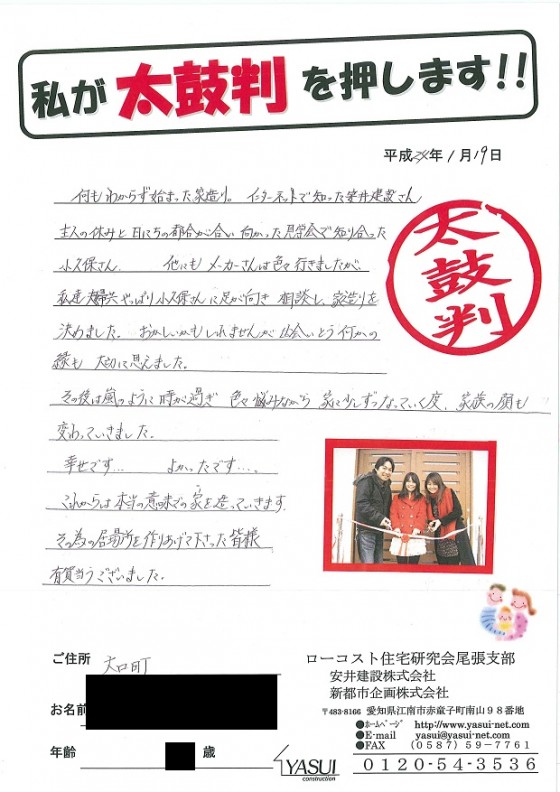 私が太鼓判を押します!!
平成 年 1月19日
何もわからず始まった家造り。インターネットで知った安井建設さん
主人の休みと日にちの都合が合い 向かった見学会で知り合った
小久保さん。 他にもメーカーさんは色々行きましたが、
私達夫婦共やっぱり小久保さんに足が向き 相談し、家造りを
決めました。 おかしいかもしれませんが 出会いという何かの
縁も 大切に思えました。
その後は嵐のように時が過ぎ 色々悩みながら 家に少しずつなっていく度、家族の顔も
変わっていきました。
幸せです… よかったです…。
これからは本当の意味での家を造っていきます。
その為の居場所を作りあげて下さった皆様
有難うございました。
太鼓判
ご住所 大口町
お名前
年齢 歳
YASUI
construction
ローコスト住宅研究会尾張支部
安井建設株式会社
新都市企画株式会社
〒483-8166 愛知県江南市赤童子町南山98番地
●ホームページ http://www.yasui-net.com
●E-mail yasui@yasui-net.com
●FAX (0587)59-7761
0120-54-3536